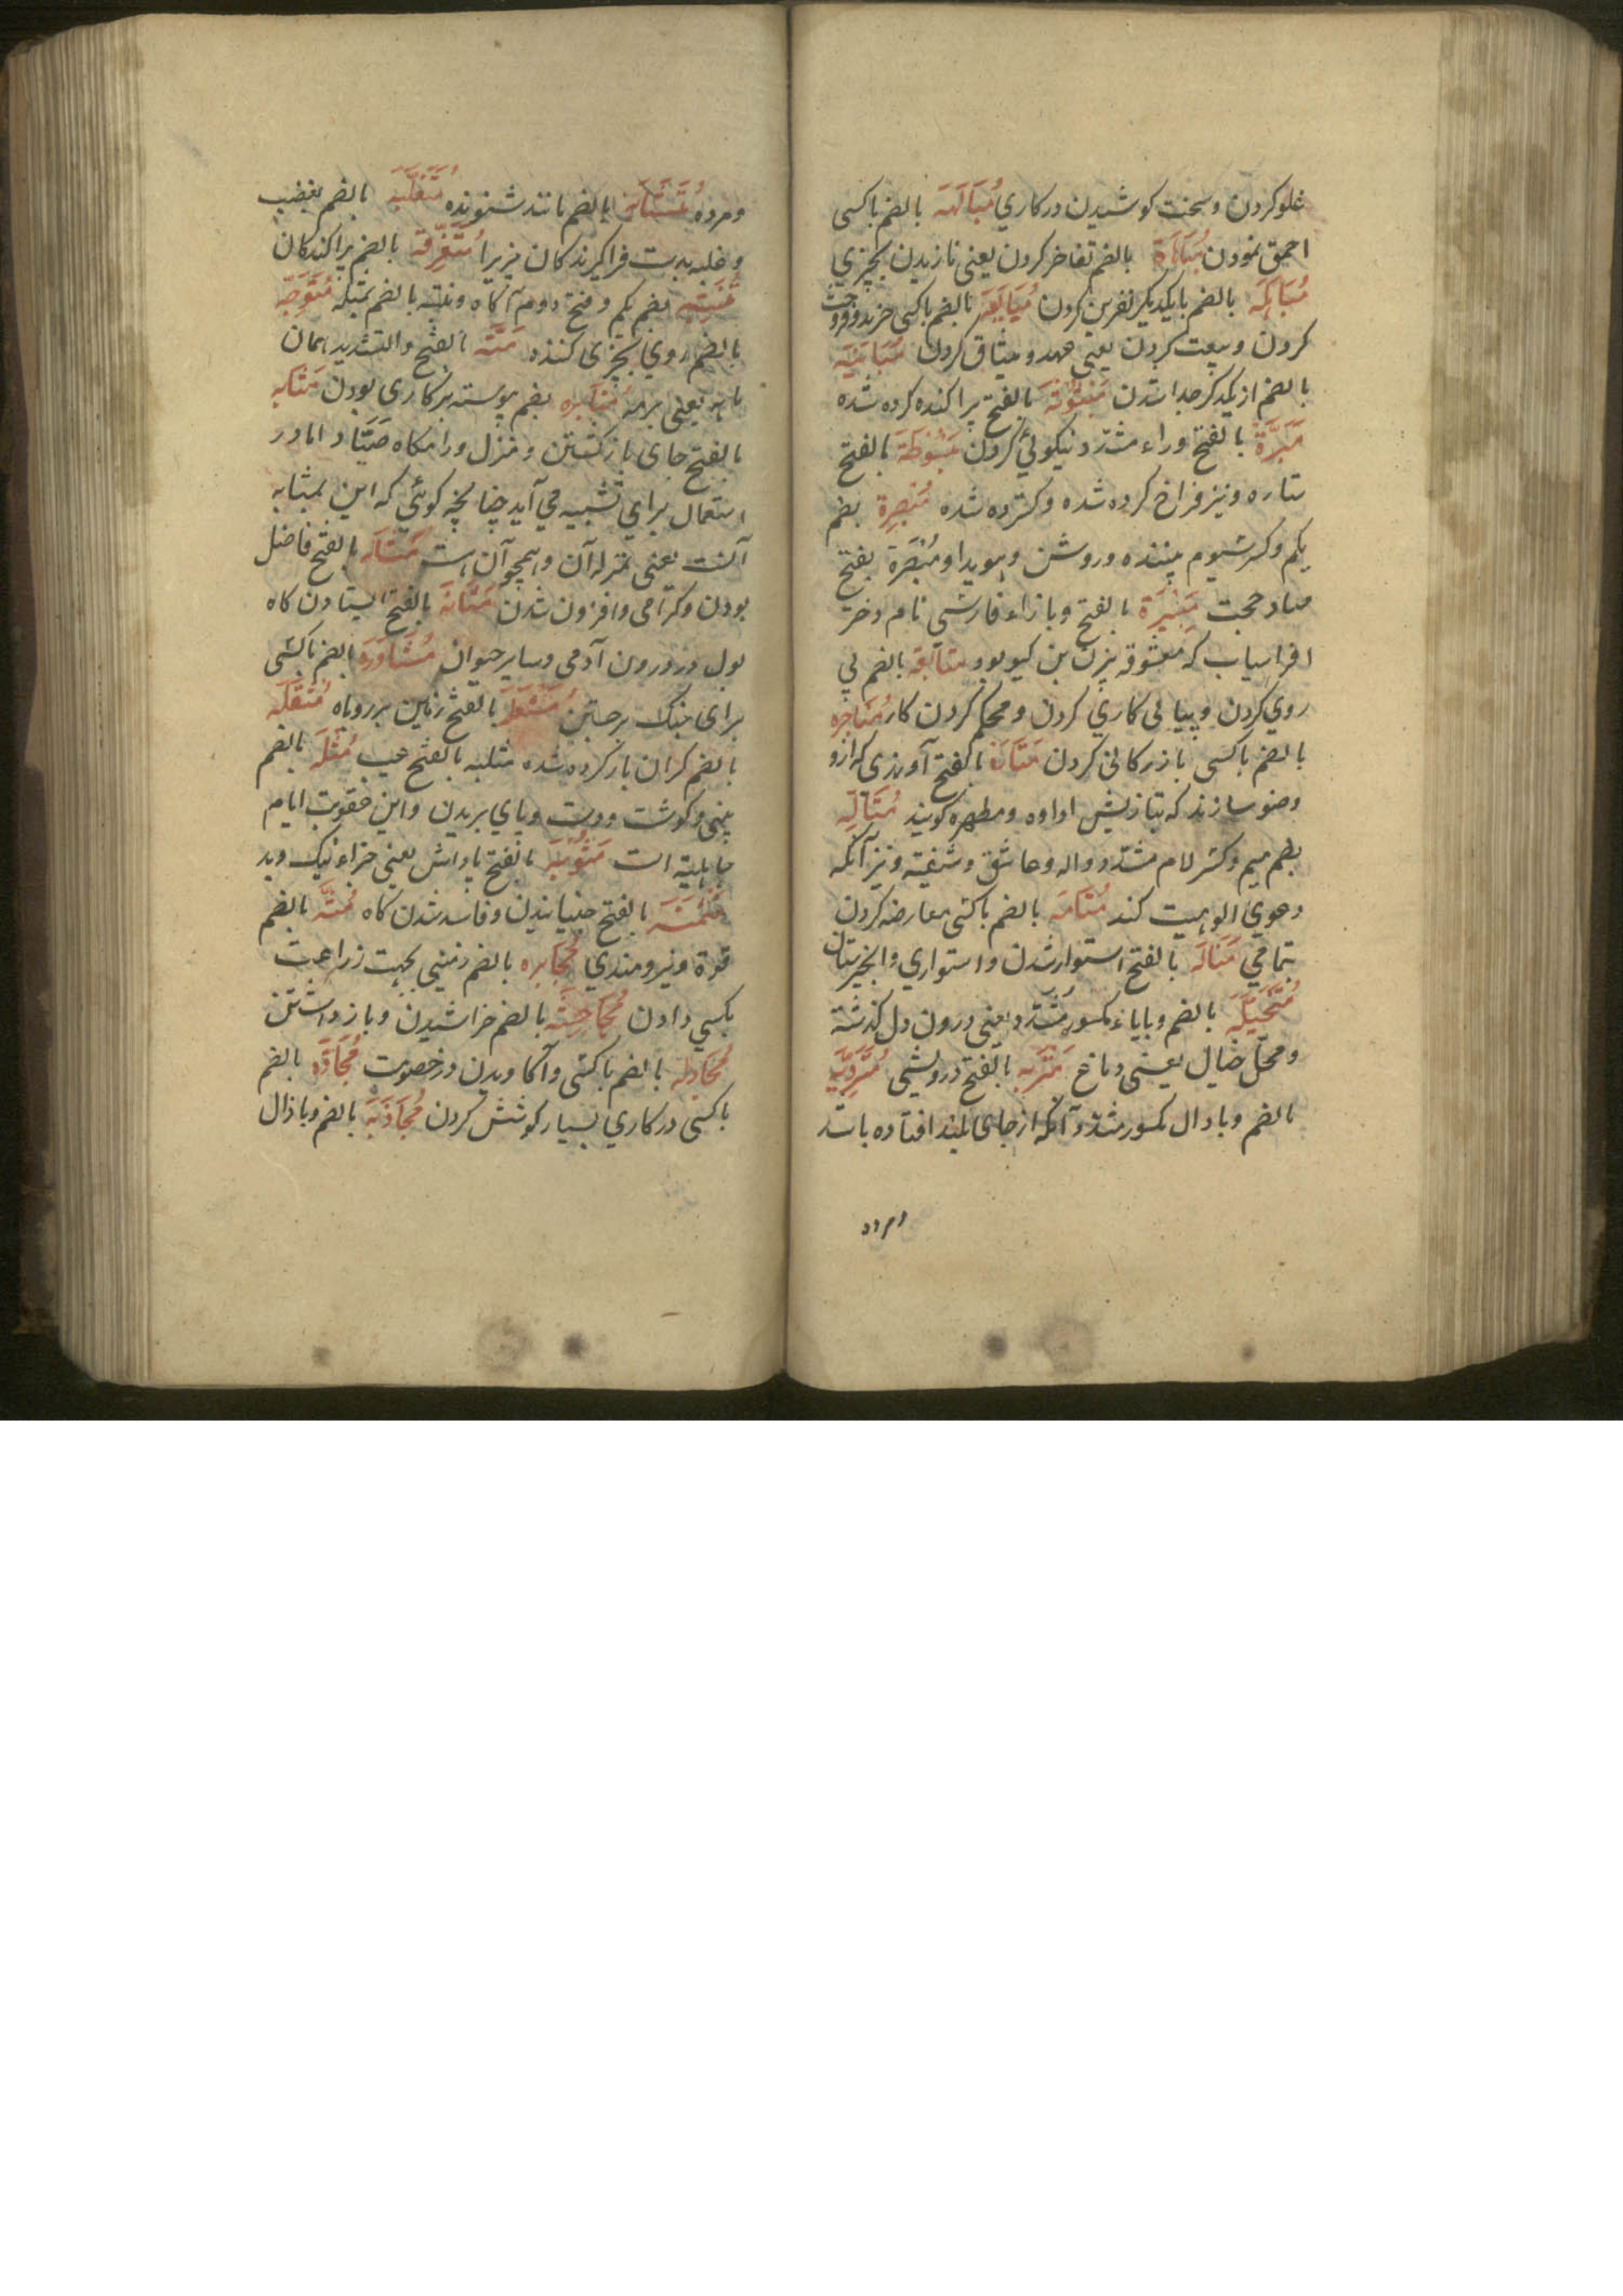 غلو کردن و سخت کوشیدن در کاری مُبَالَهَه بالضم با کسی
احمق نمودن مُبَاهَاة بالضم تفاخر کردن یعنی نازیدن بچیزی
مُبَاهَلَه بالضم با یکدیکر نفرین کردن مُبَایَعَة بالضم با کسی خرید و فروخت
کردن و بیعت کردن یعنی عهد و میثاق کردن مُبَایَنَه
بالضم از یکدکر جدا شدن مَبْثُوثَة بالفتح پراکنده کرده شده
مَبَرَّة بالفتح و راء مشدّد نیکوئی کردن مَبْسُوطَة بالفتح
ستاره و نیز فراخ کرده شده و کسترده شده مُبْصِرَة بضم
یکم و کسر سیوم بیننده و روشن و هویدا و مُبْصَرَة بفتح
صاد حجت مَنِیژَة بالفتح و با زاء فارسی نام دختر
افراسیاب که معشوقه بیژن بن کیو بود متابَعَة بالضم پی
روی کردن و پیاپی کاری کردن و محکم کردن کار مُتَاجَره
بالضم با کسی بازرکانی کردن بالفتح آوندی که ازو
وضو سازند که بتازیش اداوه و مطهره کویند مُتَأَلِّه
بضم میم و کسر لام مشدّد واله و عاشق و شیفته و نیز آنکه
دعوی الوهیت کند مُتَامَّه بالضم با کسی معارضه کردن
تمامی مَتَانَه بالفتح استوار شدن و استواری
مُتَخَیِّلَه بالضم و با یاء مکسور مشدّد یعنی درون دل کذشته
و محلّ خیال یعنی دماغ مَتْرَبَه بالفتح درویشی مُتَرَدِّیَه
بالضم و با دال مکسور مشدّد آنکه از جای بلند افتاده باشد
و مرده
و مرده بالضم مانند شنونده مُتَغَلِّبَه بالضم بغضب
و غلبه بدست فراکیرندکان چیزیرا مُتَفَرِّقَه بالضم پراکندکان
مُتَنَبِّه بضم یکم و فتح دوم آکاه بالضم مُتَوَجِّه
بالضم روی بچیزی کننده مَتَّه بالفتح والتشدید همان
یعنی برمه مُثَابَرَه بضم پیوسته بر کاری بودن مَثَابَه
بالفتح جای بازکشتن و منزل و دامکاه صیّاد امّا در
استعمال برای تشبیه می آید چنانچه کوئی که این بمثابه
آنست یعنی بمنزله آن و همچو آن است مَثَالَه بالفتح فاضل
بودن و کرامی و افزون شدن مَثَانَه بالفتح ایستادن کاه
بول در درون آدمی و سایر حیوان مُثَاوَرَه بالضم با کسی
برای جنک برجستن بالفتح مُثْقَلَه
بالضم کران بار کرده شده مثلبه بالفتح عیب مُثْلَه بالضم
بینی و کوشت و دست و پای بریدن و این عقوبت ایام
جاهلیة است مَثُوبَة بالفتح پاداش یعنی جزاء نیک و بد
بالفتح جنبانیدن و فاسد شدن کاه مُنَّه بالضم
قوة و نیرومندی مُخَابَرَه بالضم زمینی بجهت زراعت
بکسی دادن مُجَاحَشَه بالضم خراشیدن و بازداشتن
مُجَادَلَه بالضم با کسی واکاویدن در خصومت مُجَادَّه بالضم
با کسی در کاری بسیار کوشش کردن مُجَاذَبَه بالضم و با ذال